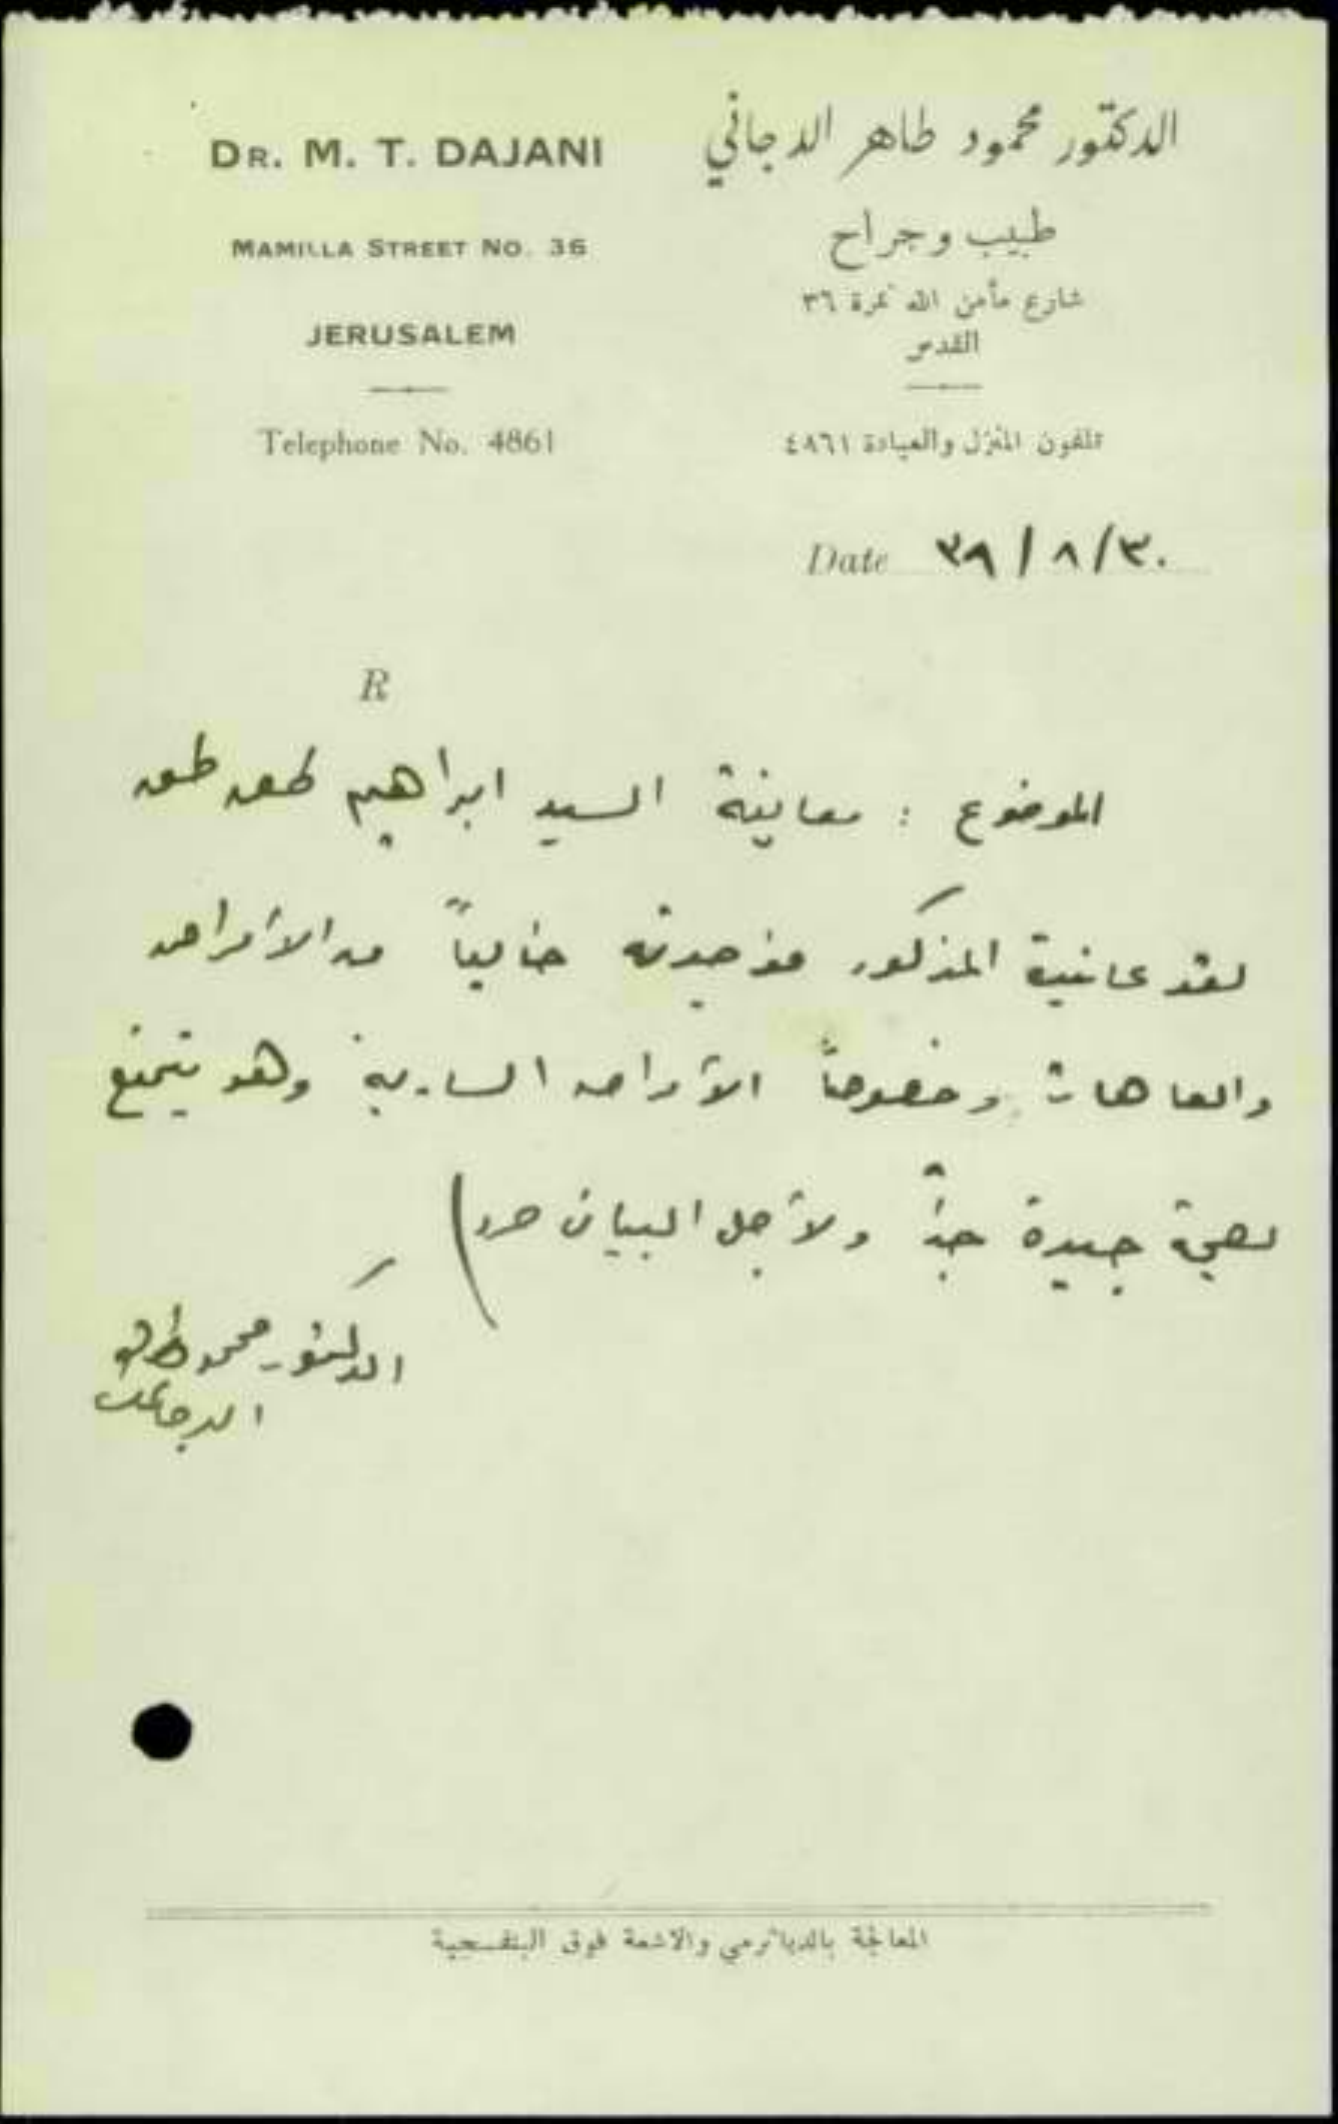 DR. M. T. DAJANI
MAMILLA STREET NO. 36
JERUSALEM
Telephone No. 4861
الدكتور محمود طاهر الدجاني
طبيب وجراح
شارع مأمن الله نمرة ٣٦
القدس
تلفون المنزل والعيادة ٤٨٦١
Date ٣٠/٨/٣٩
R
الموضوع : معاينة السيد ابراهيم طقطق
لقد عاينت المذكور فوجدته خالياً من الأمراض
والعاهات وخصوصاً الأمراض السارية وهو يتمتع
بصحة جيدة جداً ولأجل البيان حرر
الدكتور محمود طاهر
الدجاني
المعالجة بالدياثرمي والاشعة فوق البنفسجية